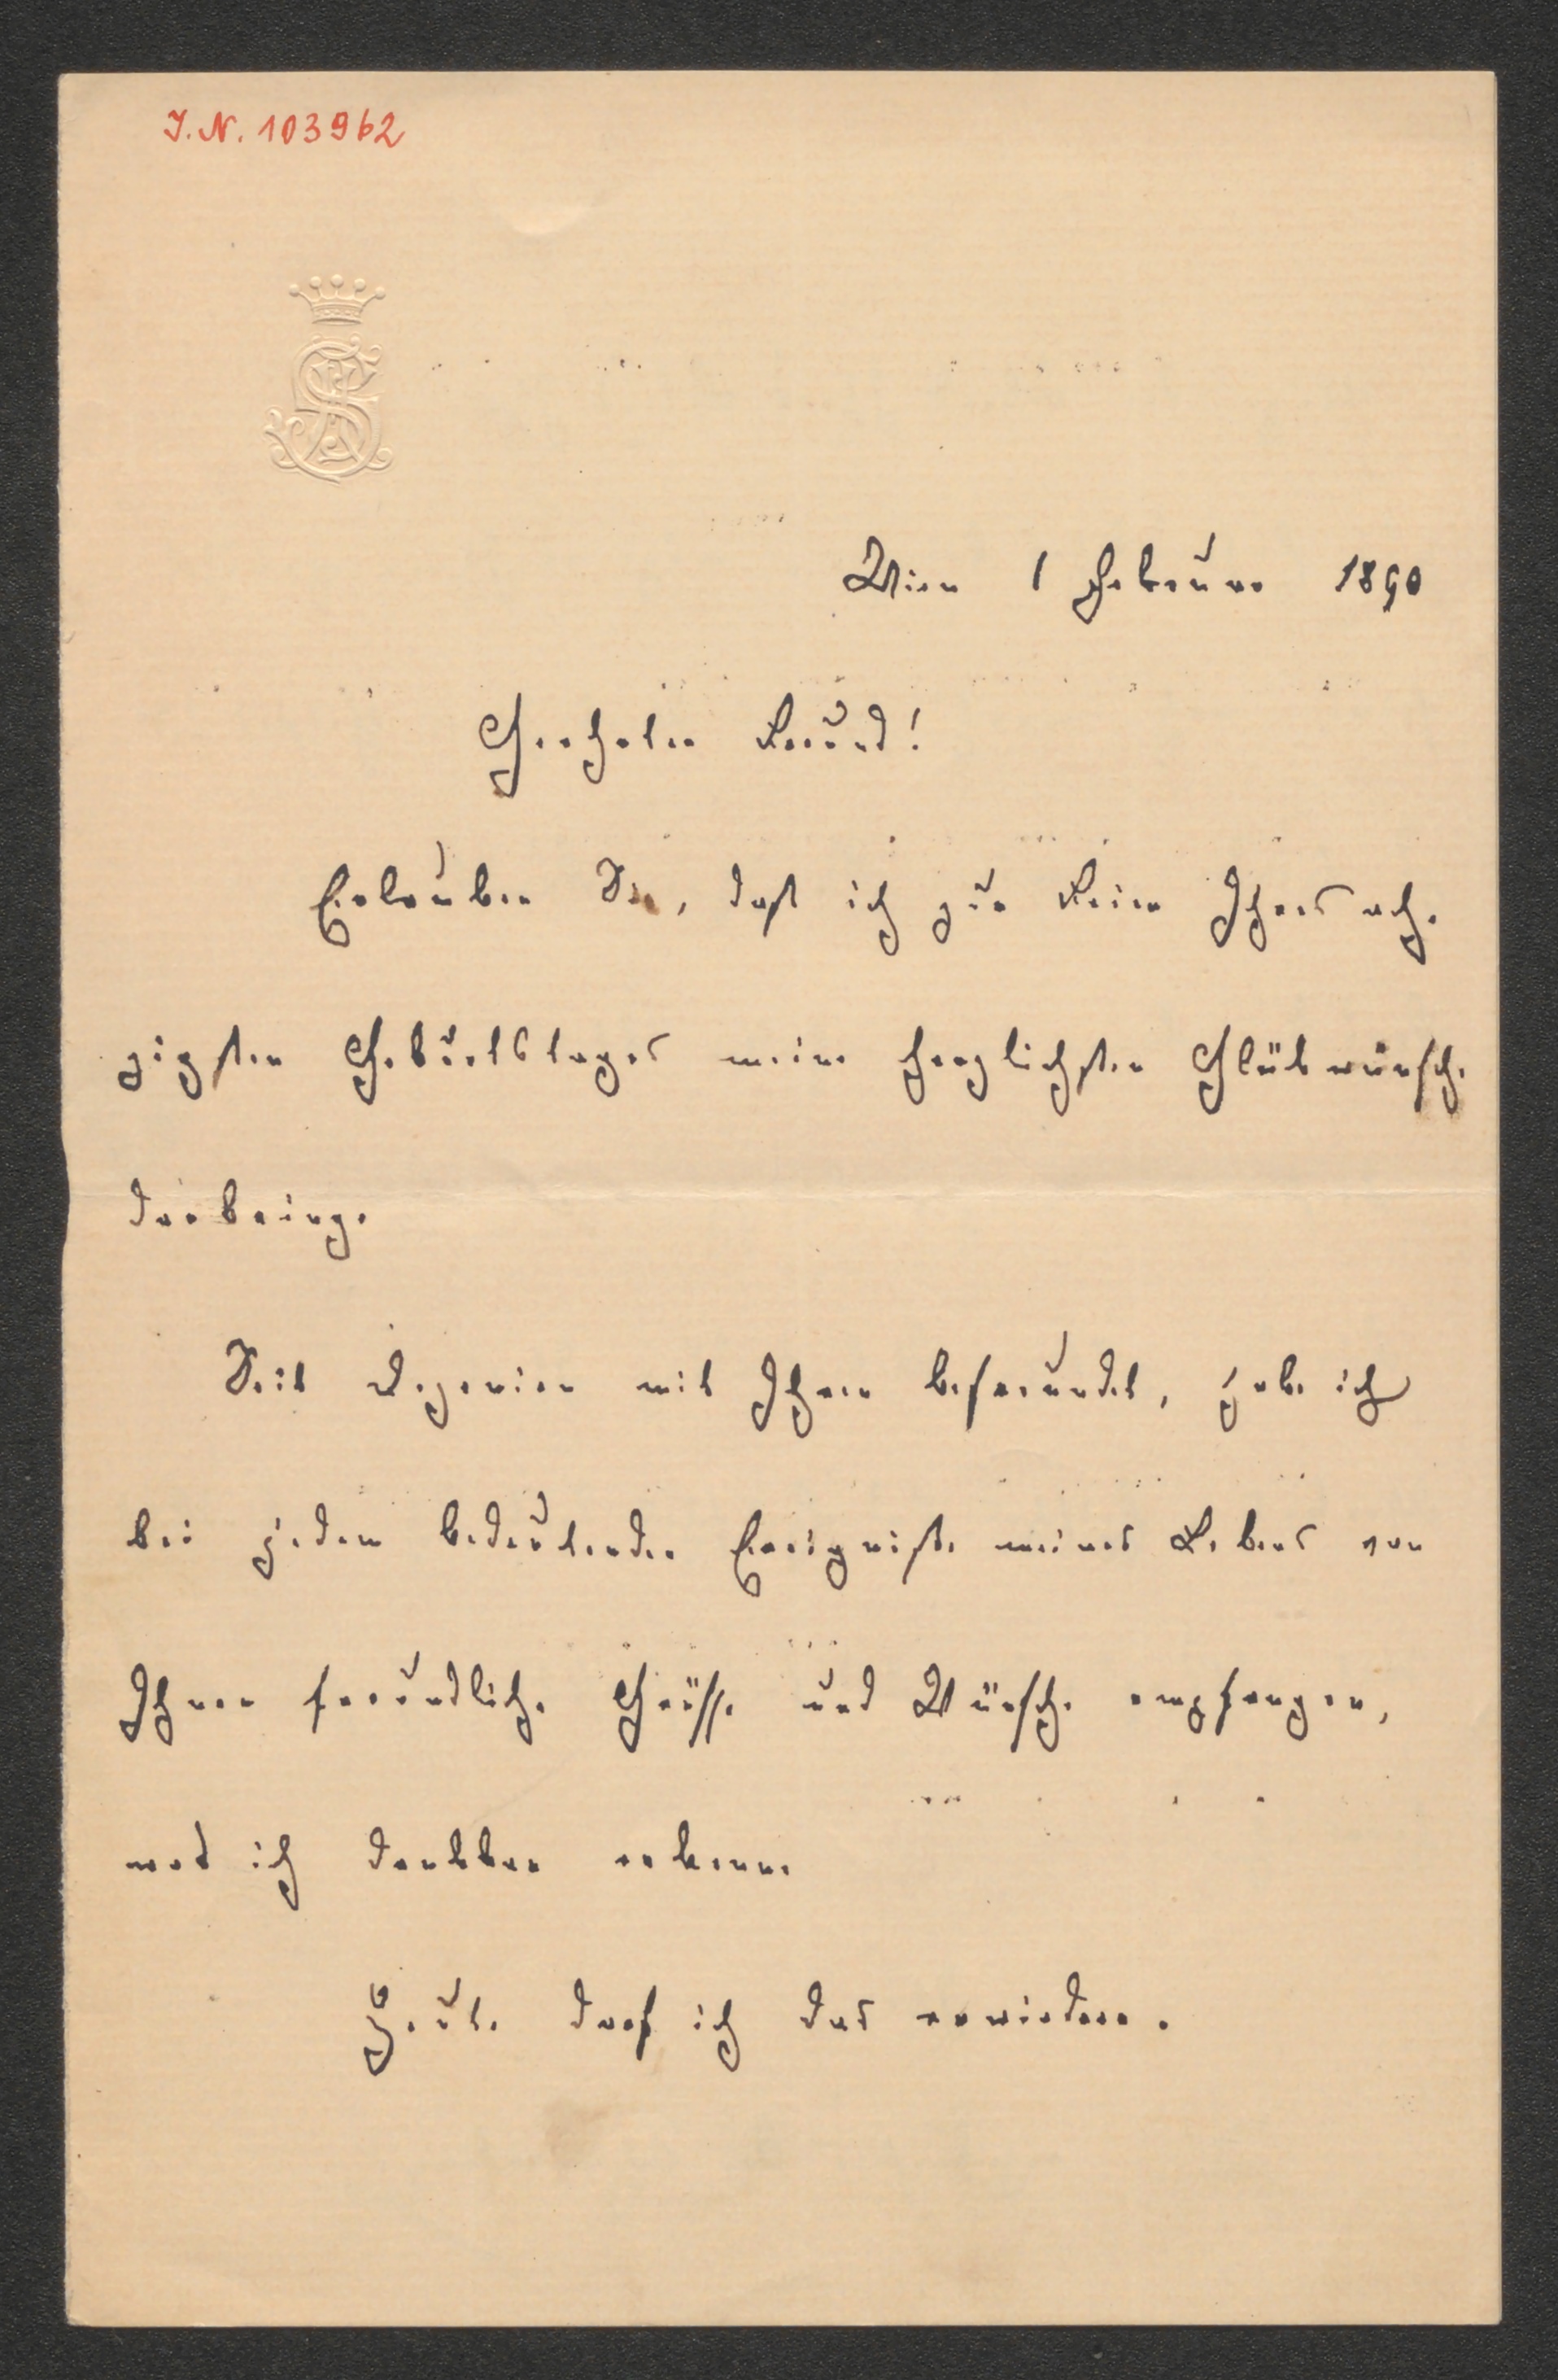 J. N. 103962
Wien 1 Februar 1890
Geehrter Freund!
Erlauben Sie, daß ich zur Feier Ihres acht
zigsten Geburtstages meine herzlichsten Glückwünsche
darbringe.
Seit Dezenien mit Ihnen befreundet, habe ich
bei jedem bedeutenden Ereigniße meines Lebens von
Ihnen freundliche Grüsse und Wünsche empfangen,
was ich dankbar erkenne
Heute darf ich das erwiedern.